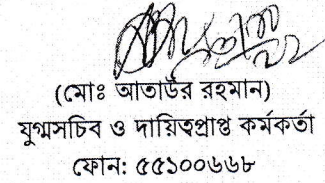 (মোঃ আতাউর রহমান)
যুগ্মসচিব ও দায়িত্বপ্রাপ্ত কর্মকর্তা
ফোন: ৫৫১০০৬৬৮